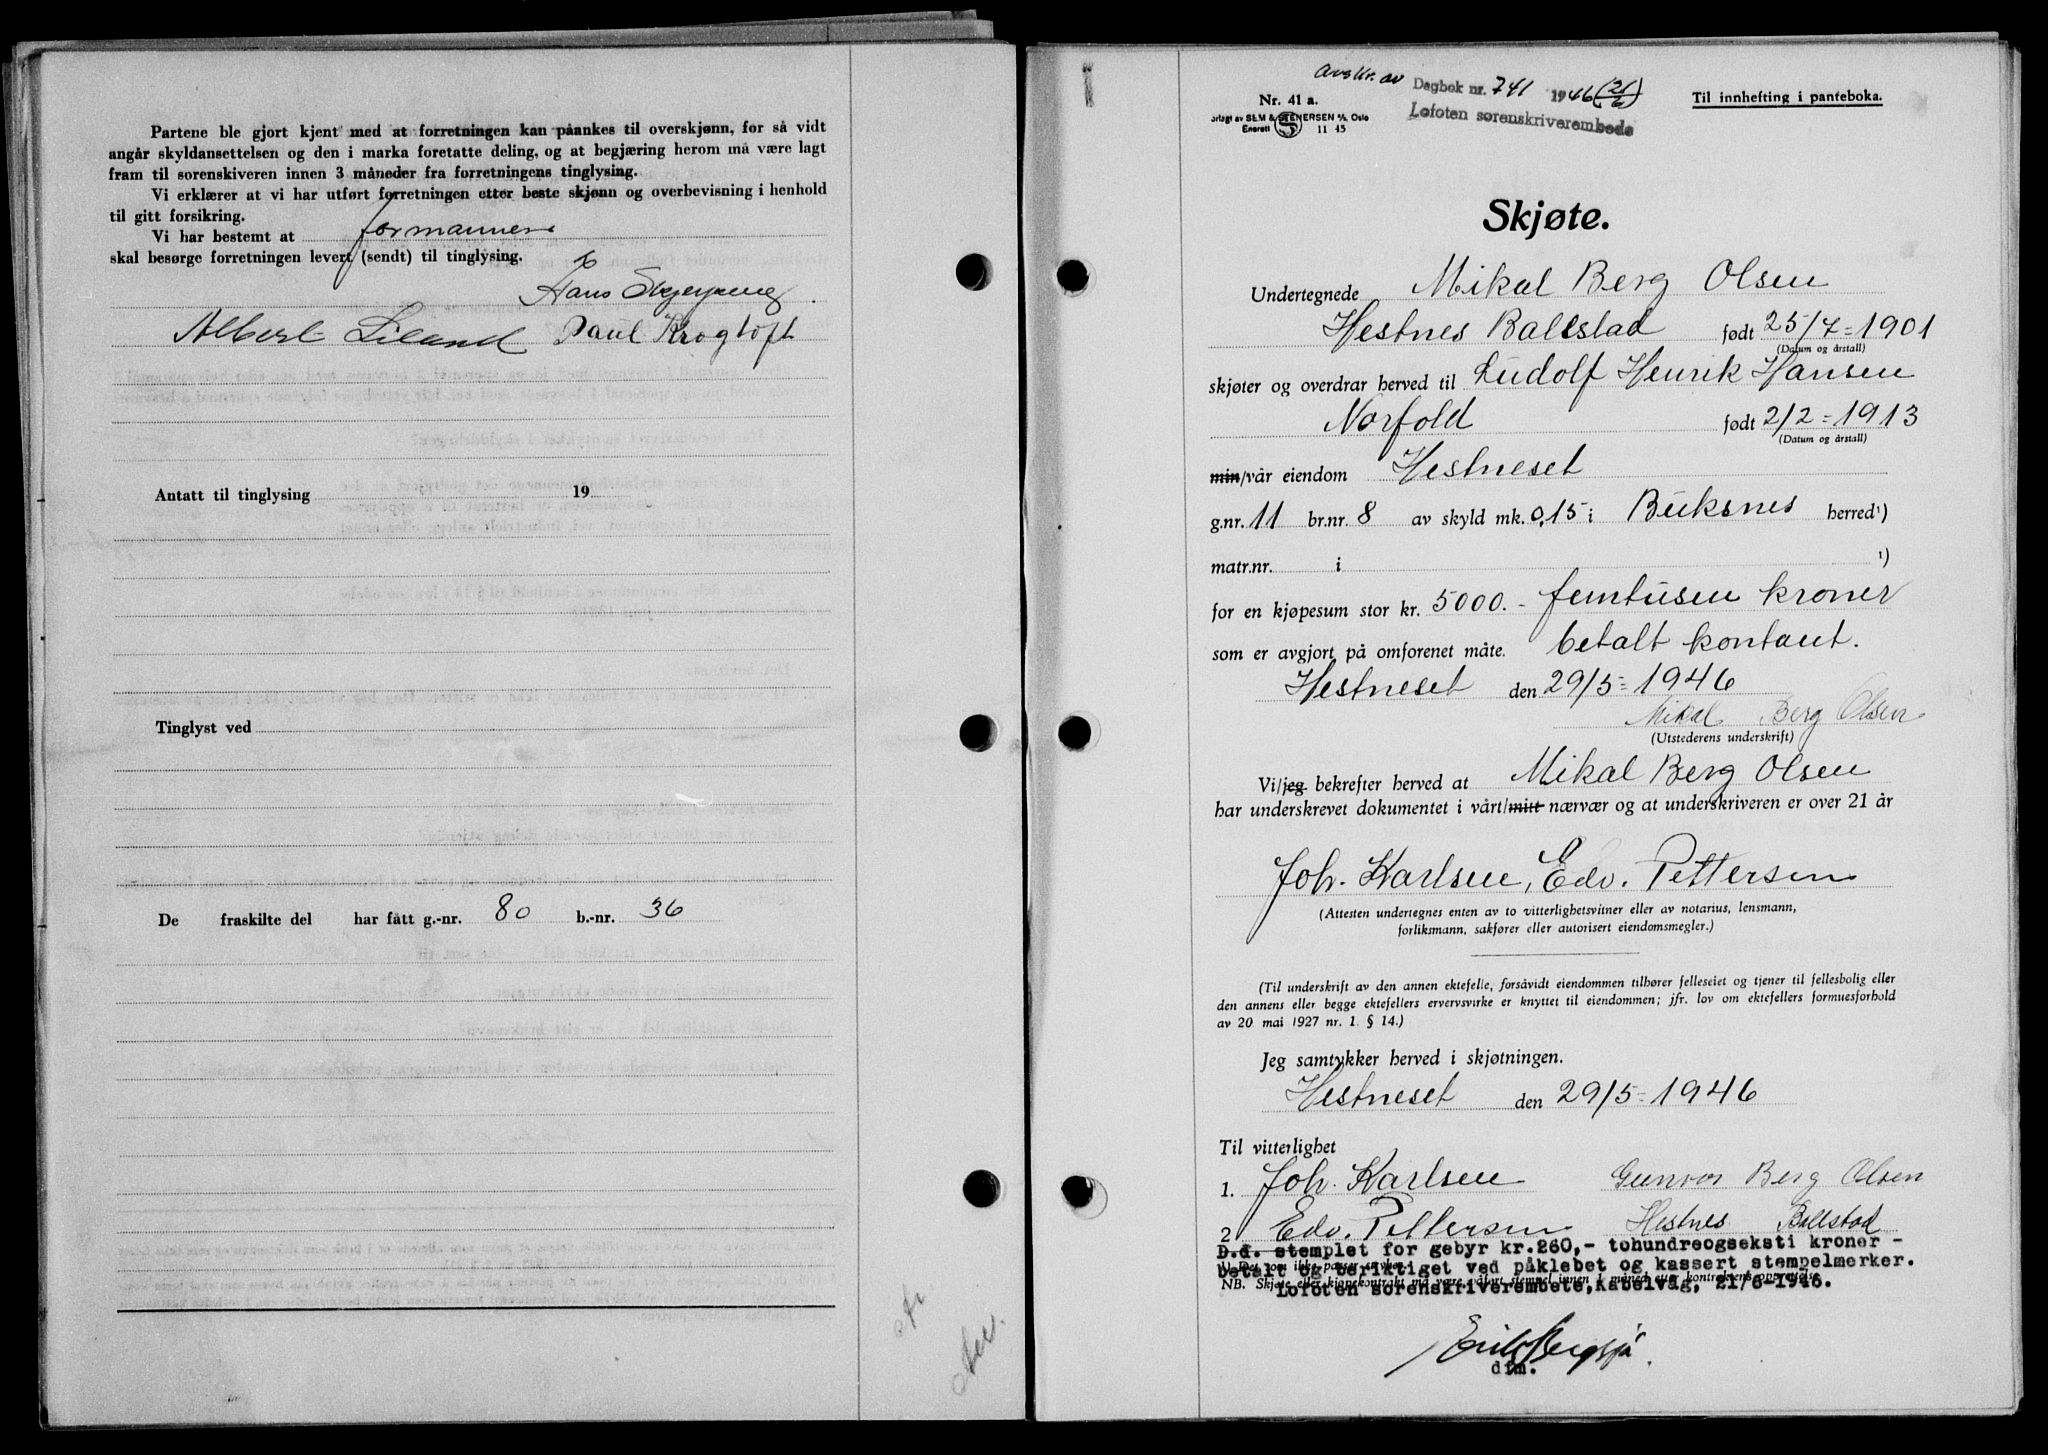 Partene ble gjort kjent med at forretningen kan påankes til overskjønn, for så vidt
angår skyldansettelsen og den i marka foretatte deling, og at begjæring herom må være lagt
fram til sorenskiveren innen 3 måneder fra forretningens tinglysing.
Vi erklærer at vi har utført forretningen etter beste skjønn og overbevisning i henhold
til gitt forsikring.
Vi har bestemt at formannen
skal besørge forretningen levert (sendt) til tinglysing.
Hans
Albert Liland Paul Krogtoft
Antatt til tinglysing 19
Tinglyst ved
De fraskilte del har fått g.-nr. 80 b.-nr. 36
Avskr. av Dagbok nr. 741 1946 (21/6)
Lofoten sorenskriverembede
Nr. 41 a.
Til innhefting i panteboka.
orlagt av SEM & STENERSEN A/S, Oslo
Enerett S 11 45
Skjøte.
Undertegnede Mikal Berg Olsen
Hestnes Ballstad født 25/7=1901
(Datum og årstall)
skjøter og overdrar herved til Ludolf Henrik Hansen
Norfold født 2/2=1913
(Datum og årstall)
min/vår eiendom Hestneset
g.nr. 11 br.nr. 8 av skyld mk. 0,15 i Buksnes herred¹)
matr.nr. i ¹)
for en kjøpesum stor kr. 5000.- femtusen kroner
som er avgjort på omforenet måte. betalt kontant.
Hestneset den 29/5=1946
Mikal Berg Olsen
(Utstederens underskrift)
Vi/jeg bekrefter herved at Mikal Berg Olsen
har underskrevet dokumentet i vårt/mitt nærvær og at underskriveren er over 21 år
Joh. Karlsen, Edv. Pettersen
(Attesten undertegnes enten av to vitterlighetsvitner eller av notarius, lensmann,
forliksmann, sakfører eller autorisert eiendomsmegler.)
(Til underskrift av den annen ektefelle, forsåvidt eiendommen tilhører felleseiet og tjener til fellesbolig eller
den annens eller begge ektefellers ervervsvirke er knyttet til eiendommen; jfr. lov om ektefellers formuesforhold
av 20 mai 1927 nr. 1 § 14.)
Jeg samtykker herved i skjøtningen.
Hestneset den 29/5=1946
Til vitterlighet
1. Joh. Karlsen Gunvor Berg Olsen
2 Edv. Pettersen Hestnes Ballstad
D.d. stemplet for gebyr kr.260,- tohundreogseksti kroner -
¹) Det som ikke passer strykes.
betalt og beriktiget ved påklebet og kassert stempelmerker.
NB. Skjøte eller kjøpekontrakt må være påført stempel innen 1 måned etter kontraktens opprettelse.
Lofoten sorenskriverembete, Kabelvåg, 21/6-1946.
Erik Bergsjø
dfm.